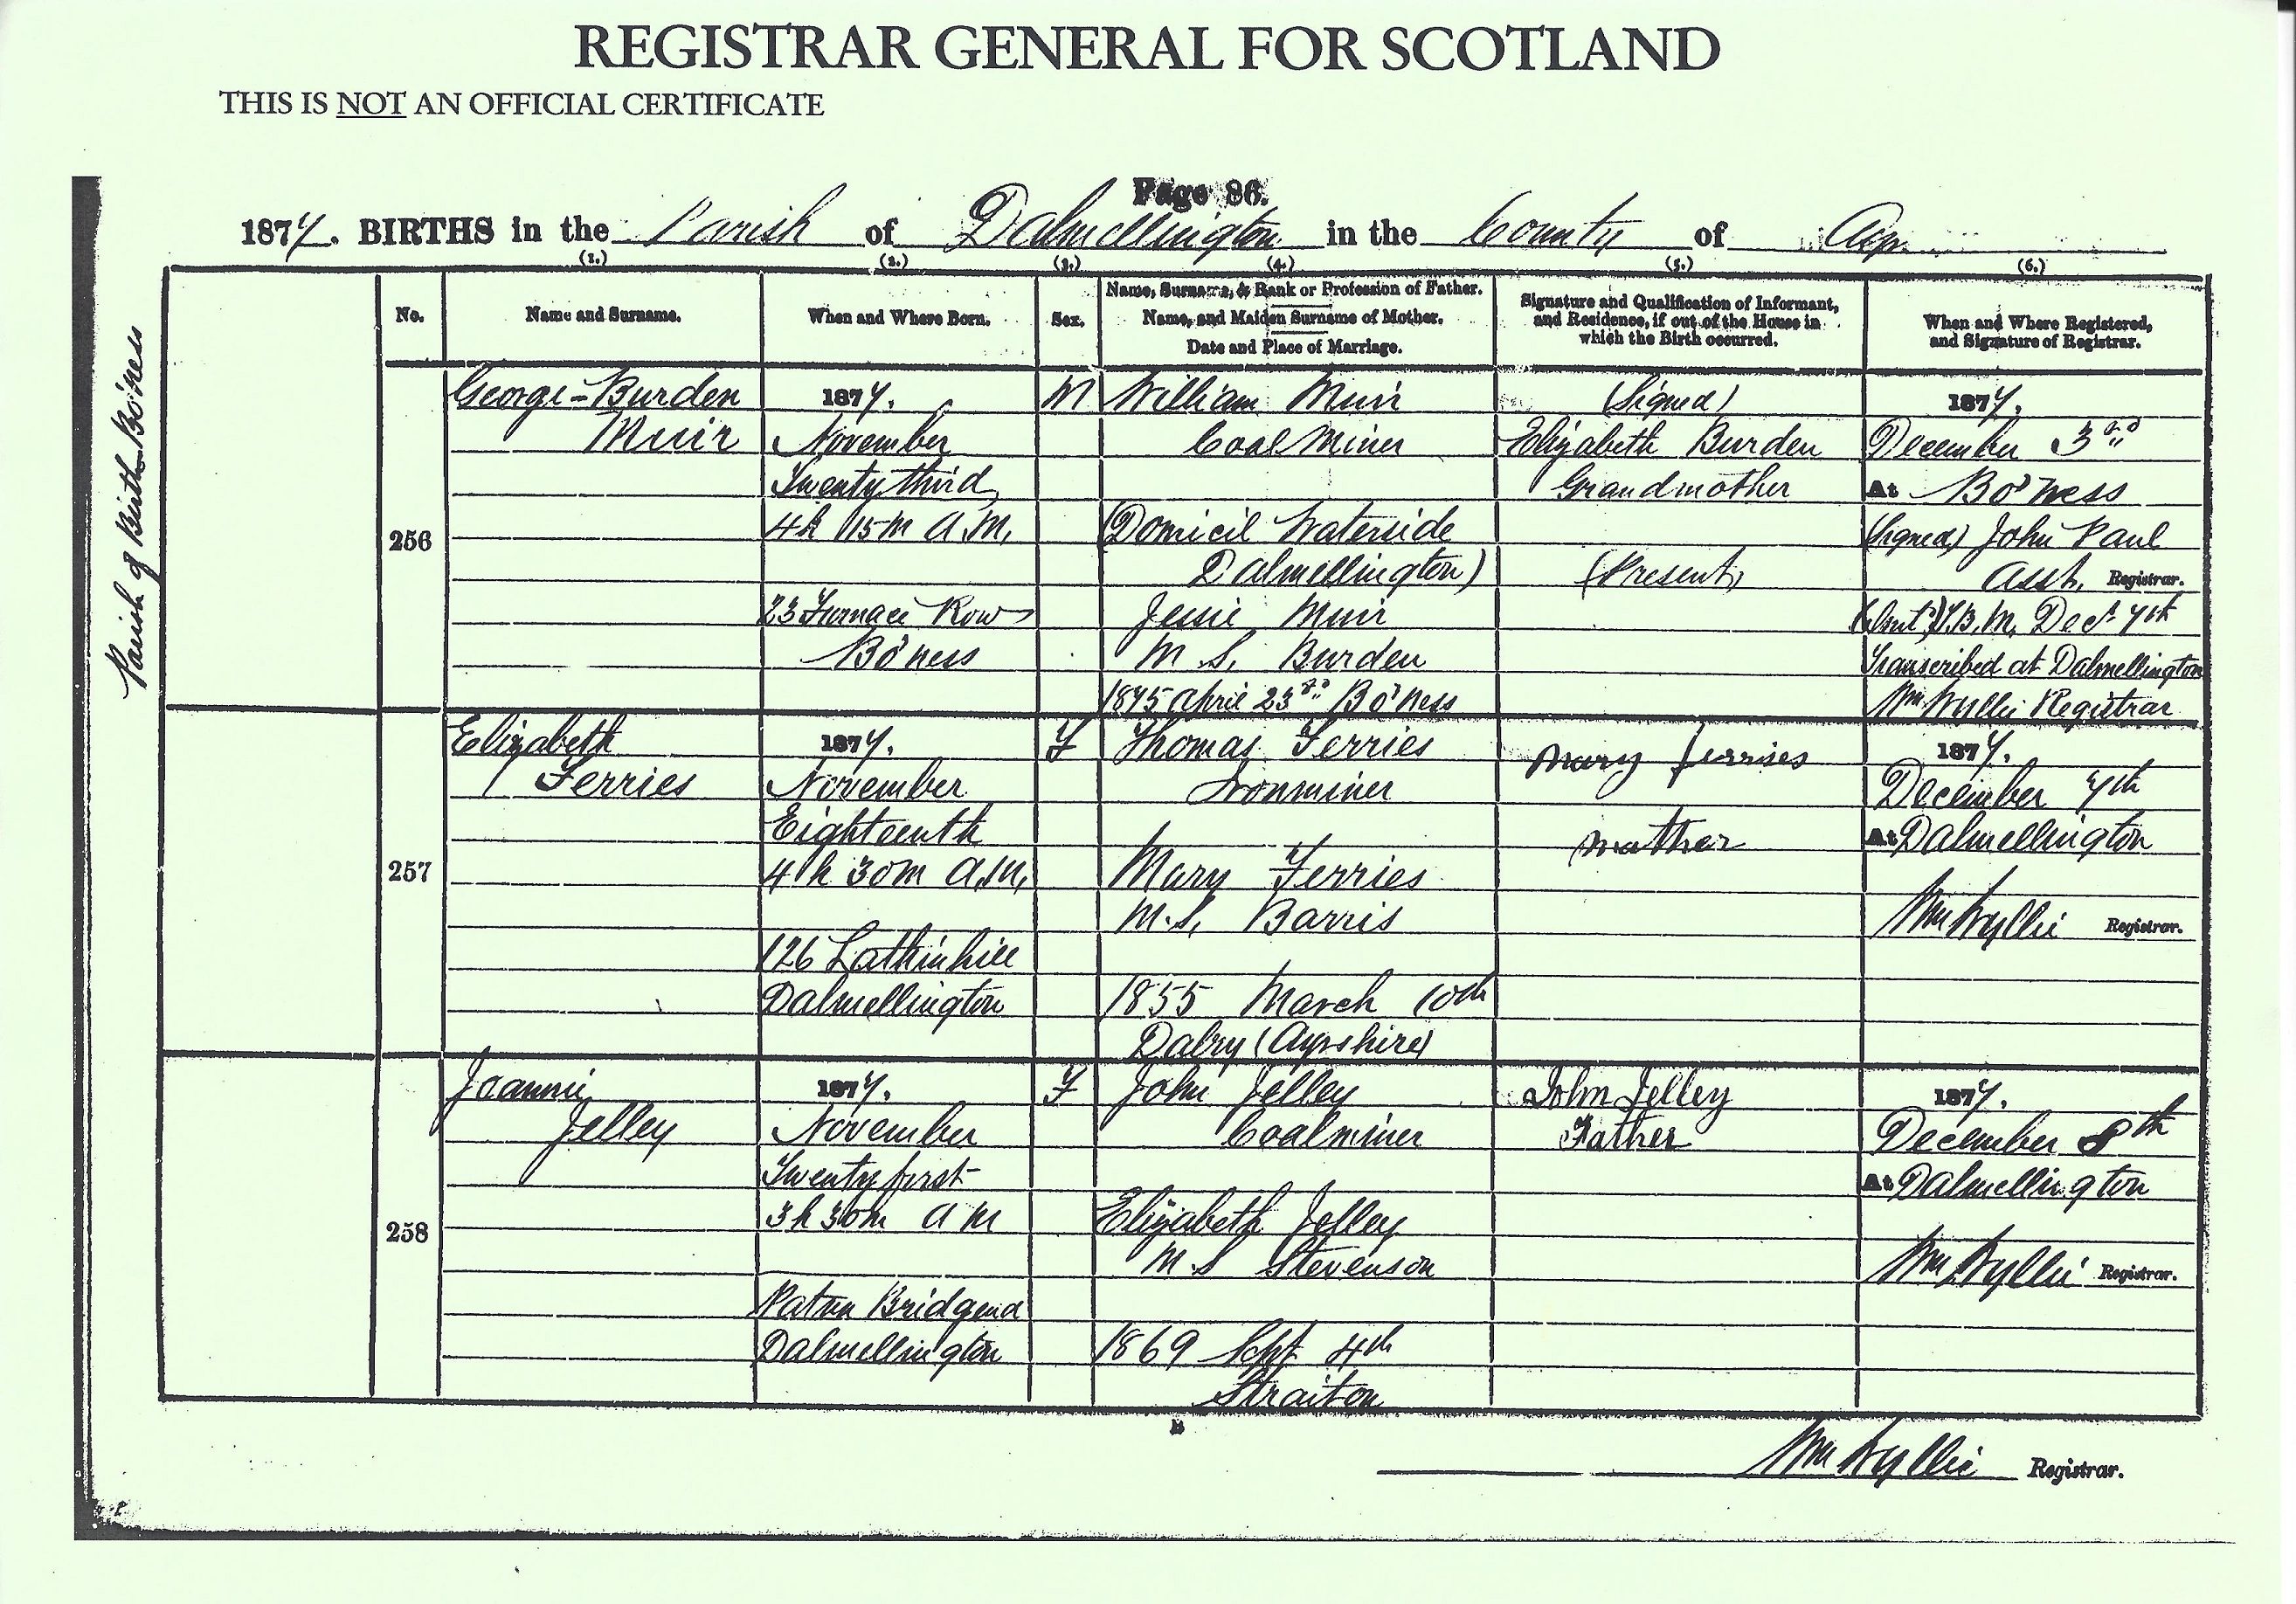 REGISTRAR GENERAL FOR SCOTLAND
THIS IS NOT AN OFFICIAL CERTIFICATE
Page 86.
1877. BIRTHS in the Parish of Dalmellington in the County of Ayr
(1.) (2.) (3.) (4.) (5.) (6.)
No.
Name and Surname.
When and Where Born.
Sex.
Name, Surname, & Rank or Profession of Father.
Name, and Maiden Surname of Mother.
Date and Place of Marriage.
Signature and Qualification of Informant,
and Residence, if out of the House in
which the Birth occurred.
When and Where Registered,
and Signature of Registrar.
Parish of Birth Bo'ness
256
George-Burden
Muir
1877.
November
Twenty third
4h 15m A.M.
23 Furnace Row
Bo'ness
M
William Muir
Coal Miner
(Domicil Waterside
Dalmellington)
Jessie Muir
M.S. Burden
1875 April 23rd Bo'ness
(Signed)
Elizabeth Burden
Grandmother
(Present)
1877.
December 3rd
At Bo'ness
(Signed) John Paul
Asst. Registrar.
J.B.M. Decr 7th
Transcribed at Dalmellington
Wm Wyllie Registrar
257
Elizabeth
Ferries
1877.
November
Eighteenth
4h 30m A.M.
126 Lathinhill
Dalmellington
F
Thomas Ferries
Ironminer
Mary Ferries
M.S. Barris
1855 March 10th
Dalry (Ayrshire)
Mary Ferrises
mother
1877.
December 7th
At Dalmellington
Wm Wyllie Registrar.
258
Joannie
Jelley
1877.
November
Twenty first
3h 30m A M
Patna Bridgend
Dalmellington
F
John Jelley
Coalminer
Elizabeth Jelley
M.S Stevenson
1869 Sept 4th
Straiton
John Jelley
Father
1877.
December 8th
At Dalmellington
Wm Wyllie Registrar.
B
Wm Wyllie Registrar.